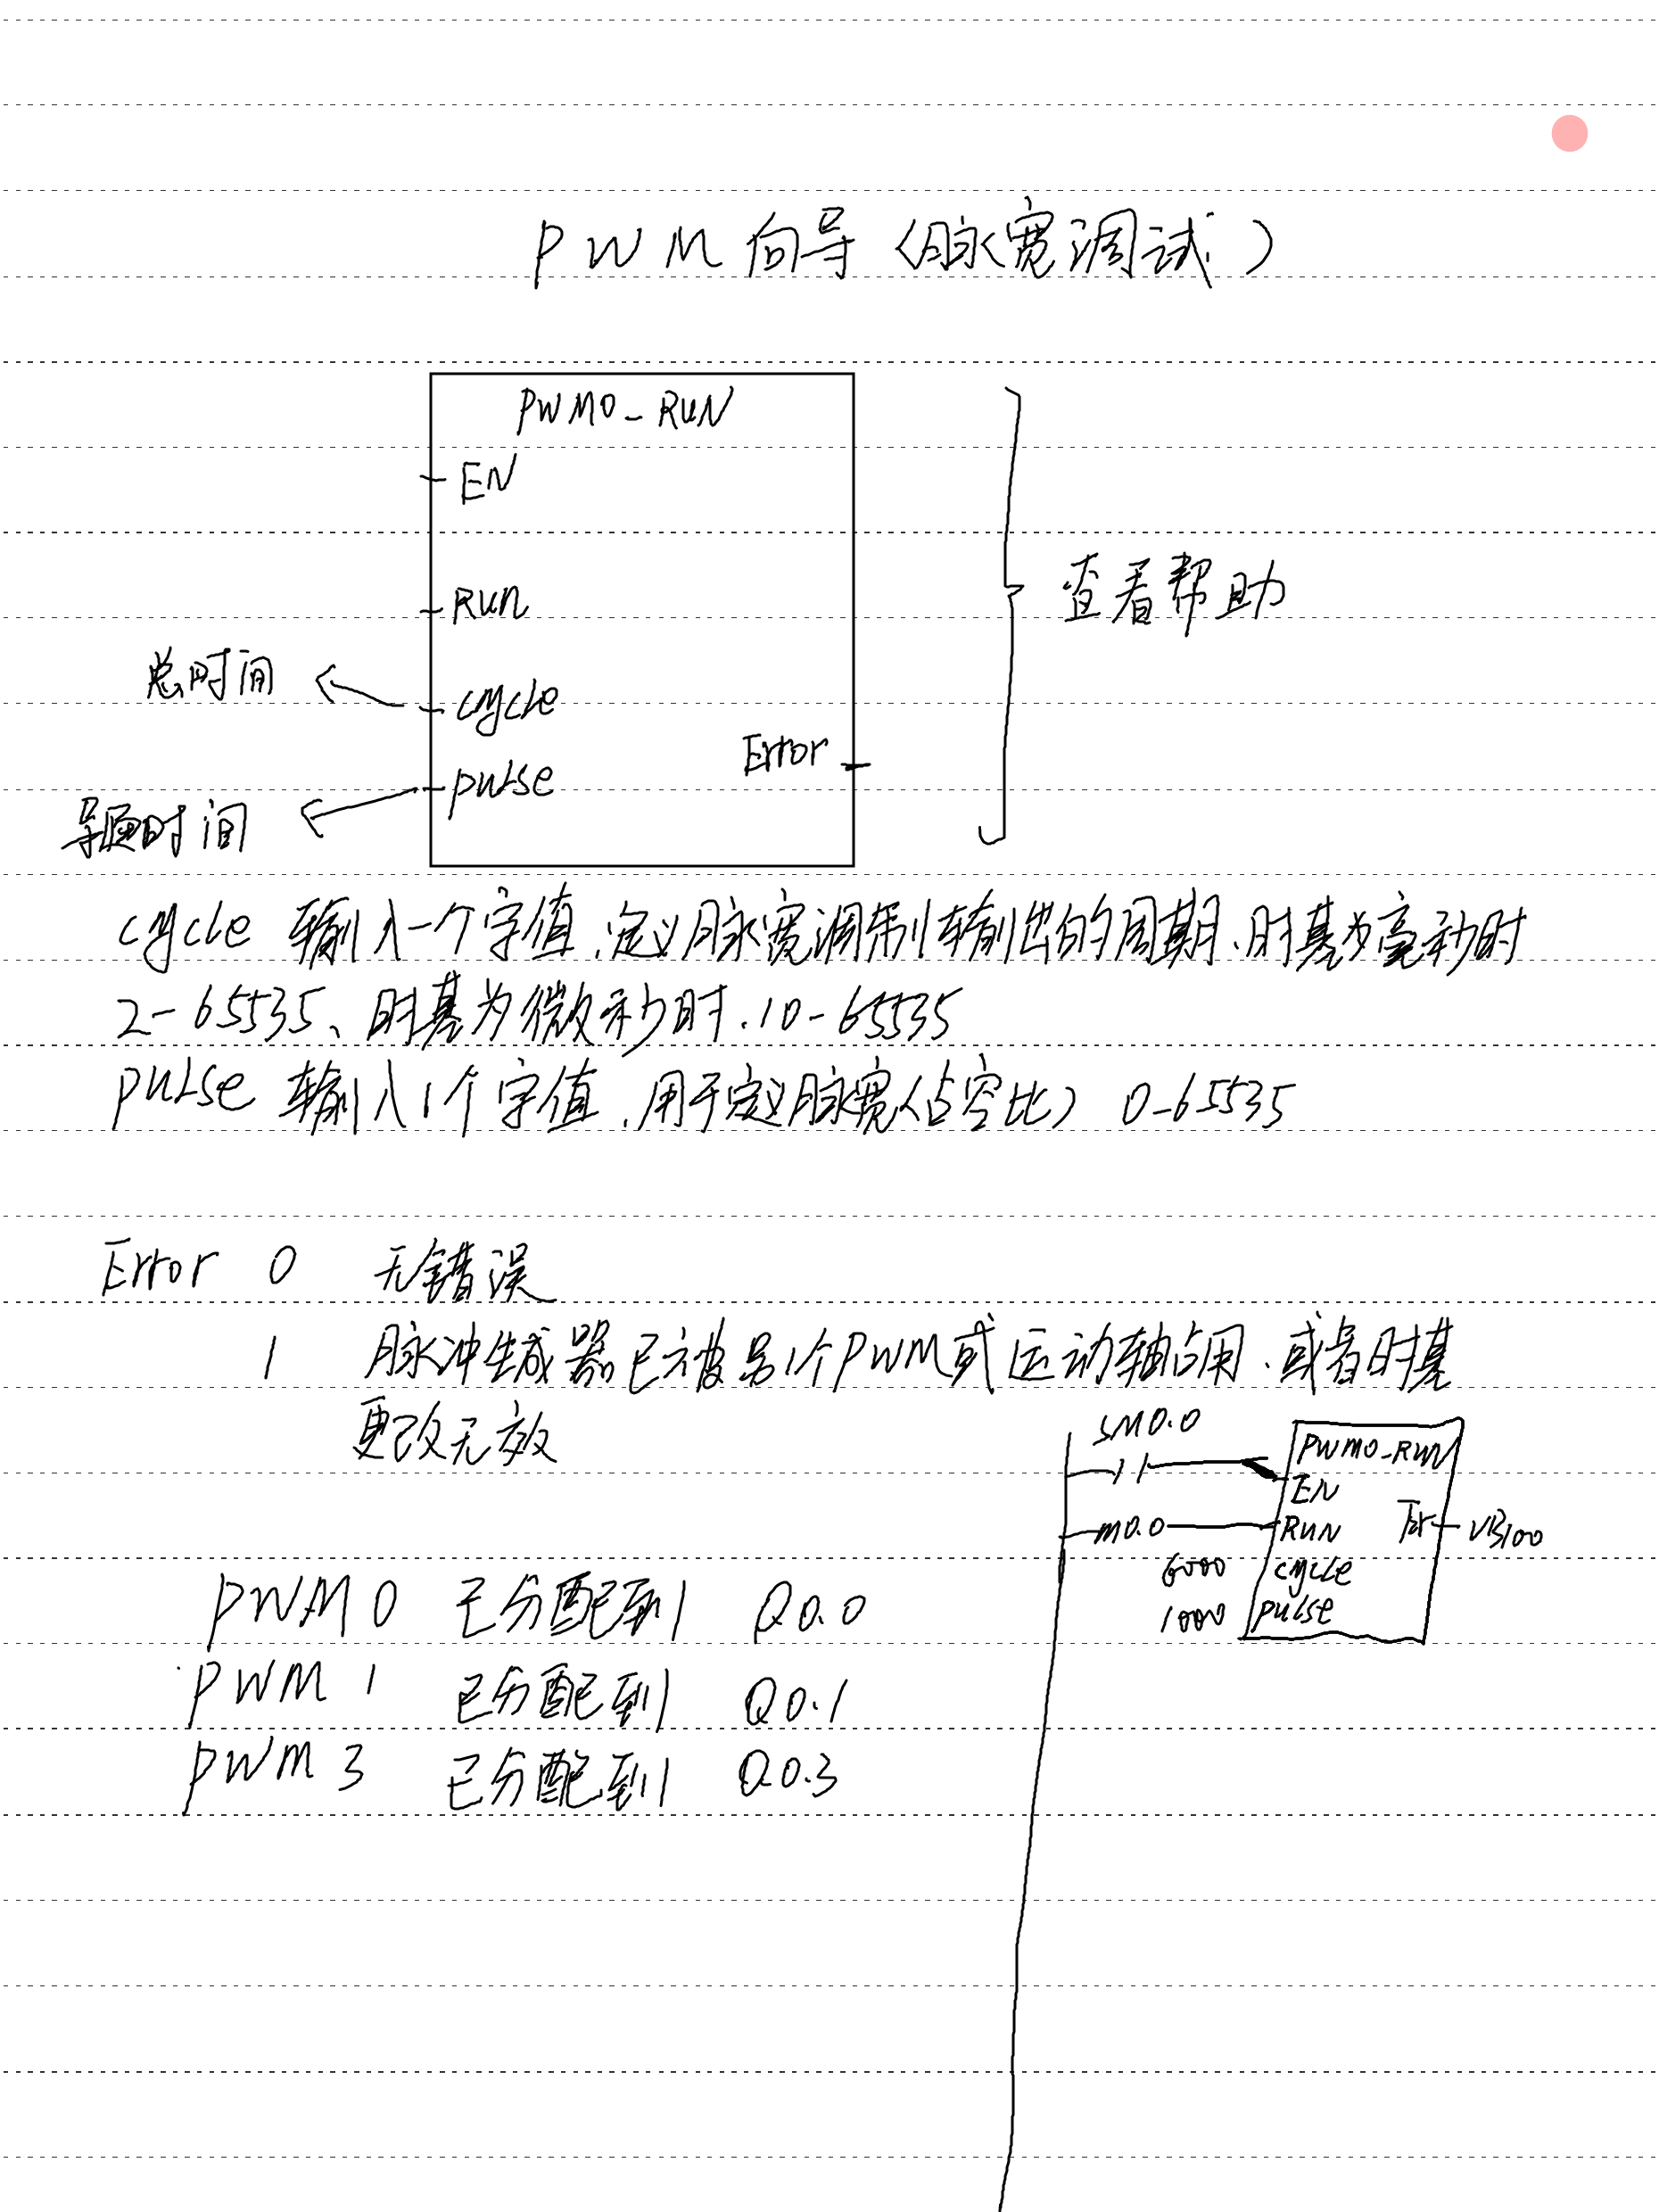 PWM向导（脉宽调试）
PWM0_RUN
EN
RUN
查看帮助
总时间
cycle
Error
pulse
时间
cycle 输入一个字值、定义脉宽调制输出的周期、时基为毫秒时
2-65535、时基为微秒时、10-65535
pulse 输入1个字值、用于定义脉宽（占空比） 0-65535
Error 0 无错误
1 脉冲生成器已被另1个PWM或运动轴占用、或者时基
更改无效
SM0.0
PWM0_RUN
EN
M0.0 RUN Err VB100
6000 cycle
1000 pulse
PWM0 已分配到 Q0.0
PWM1 已分配到 Q0.1
PWM3 已分配到 Q0.3